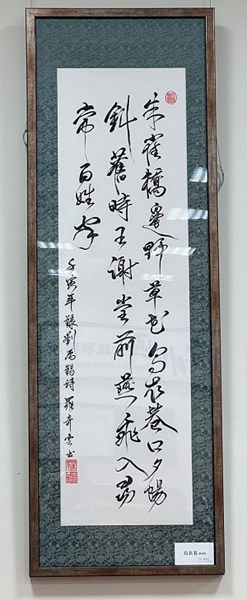 朱雀橋邊野草花烏衣巷口夕陽
斜舊時王謝堂前燕飛入尋
常百姓家
壬寅年錄劉禹錫詩 羅奇雲書
烏衣巷